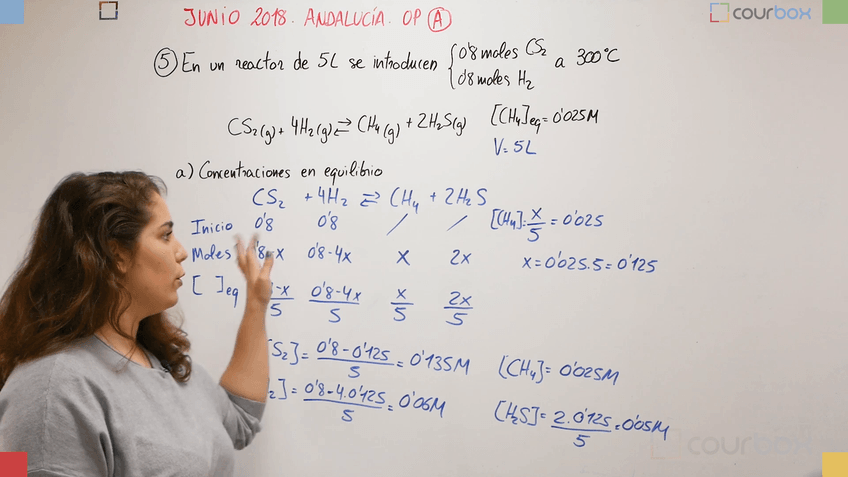 JUNIO 2018. ANDALUCÍA. OP A
courbox
5 En un reactor de 5L se introducen { 0'8 moles CS2 a 300°C
0'8 moles H2
CS2(g) + 4H2(g) ⇄ CH4(g) + 2H2S(g) [CH4]eq = 0'025M
V = 5L
a) Concentraciones en equilibrio
CS2 + 4H2 ⇄ CH4 + 2H2S
Inicio 0'8 0'8 / / [CH4]: x/5 = 0'025
Moles 0'8-x 0'8-4x x 2x x = 0'025.5 = 0'125
[ ]eq -x/5 0'8-4x/5 x/5 2x/5
S2] = 0'8-0'125/5 = 0'135M [CH4] = 0'025M
2] = 0'8-4.0'125/5 = 0'06M [H2S] = 2.0'125/5 = 0'05M
courbox